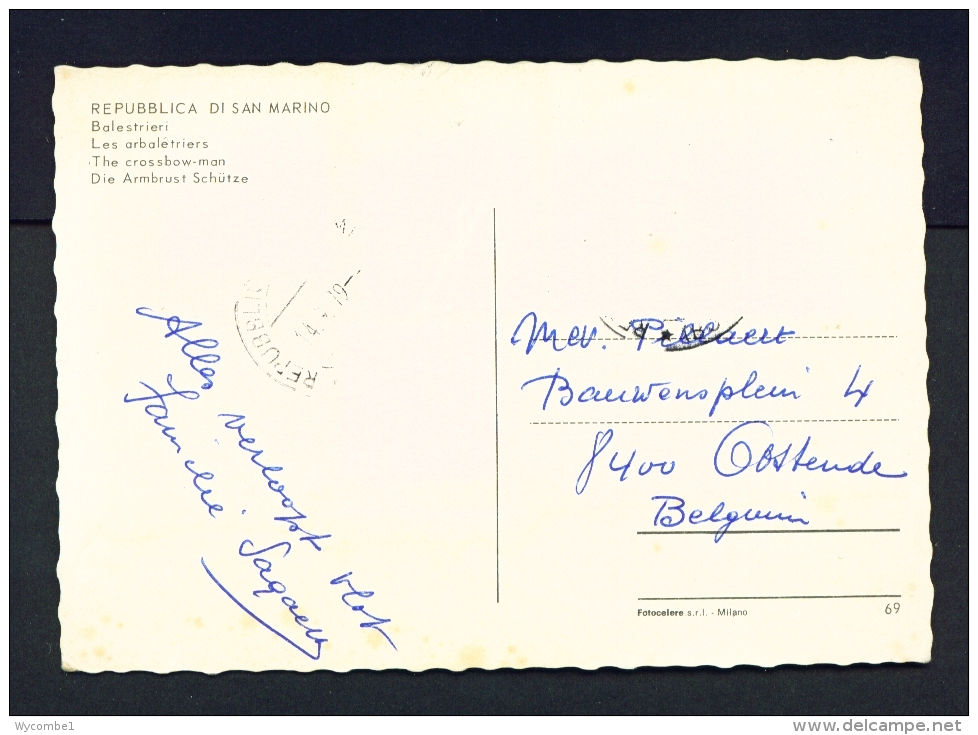 REPUBBLICA DI SAN MARINO
Balestrieri
Les arbalétriers
The crossbow-man
Die Armbrust Schütze
REPUBBLICA
Alles verloopt vlot
Familie
Mev.
Bauwensplein 4
8400 Oostende
Belguim
Fotocelere s.r.l. - Milano
69
Wycombe1
www.delcampe.net